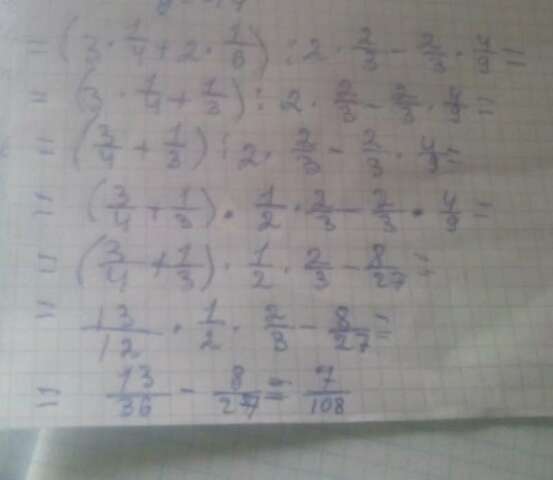 = (3 · 1/4 + 2 · 1/6) : 2 · 2/3 - 2/3 · 4/9 =
= (3 · 1/4 + 1/3) : 2 · 2/3 - 2/3 · 4/9 =
= (3/4 + 1/3) : 2 · 2/3 - 2/3 · 4/9 =
= (3/4 + 1/3) · 1/2 · 2/3 - 2/3 · 4/9 =
= (3/4 + 1/3) · 1/2 · 2/3 - 8/27 =
= 13/12 · 1/2 · 2/3 - 8/27 =
= 13/36 - 8/27 = 7/108